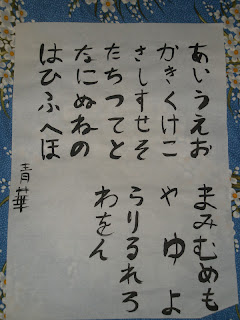 あいうえお
かきくけこ
さしすせそ
たちつてと
なにぬねの
はひふへほ
まみむめも
や ゆ よ
らりるれろ
わをん
青華